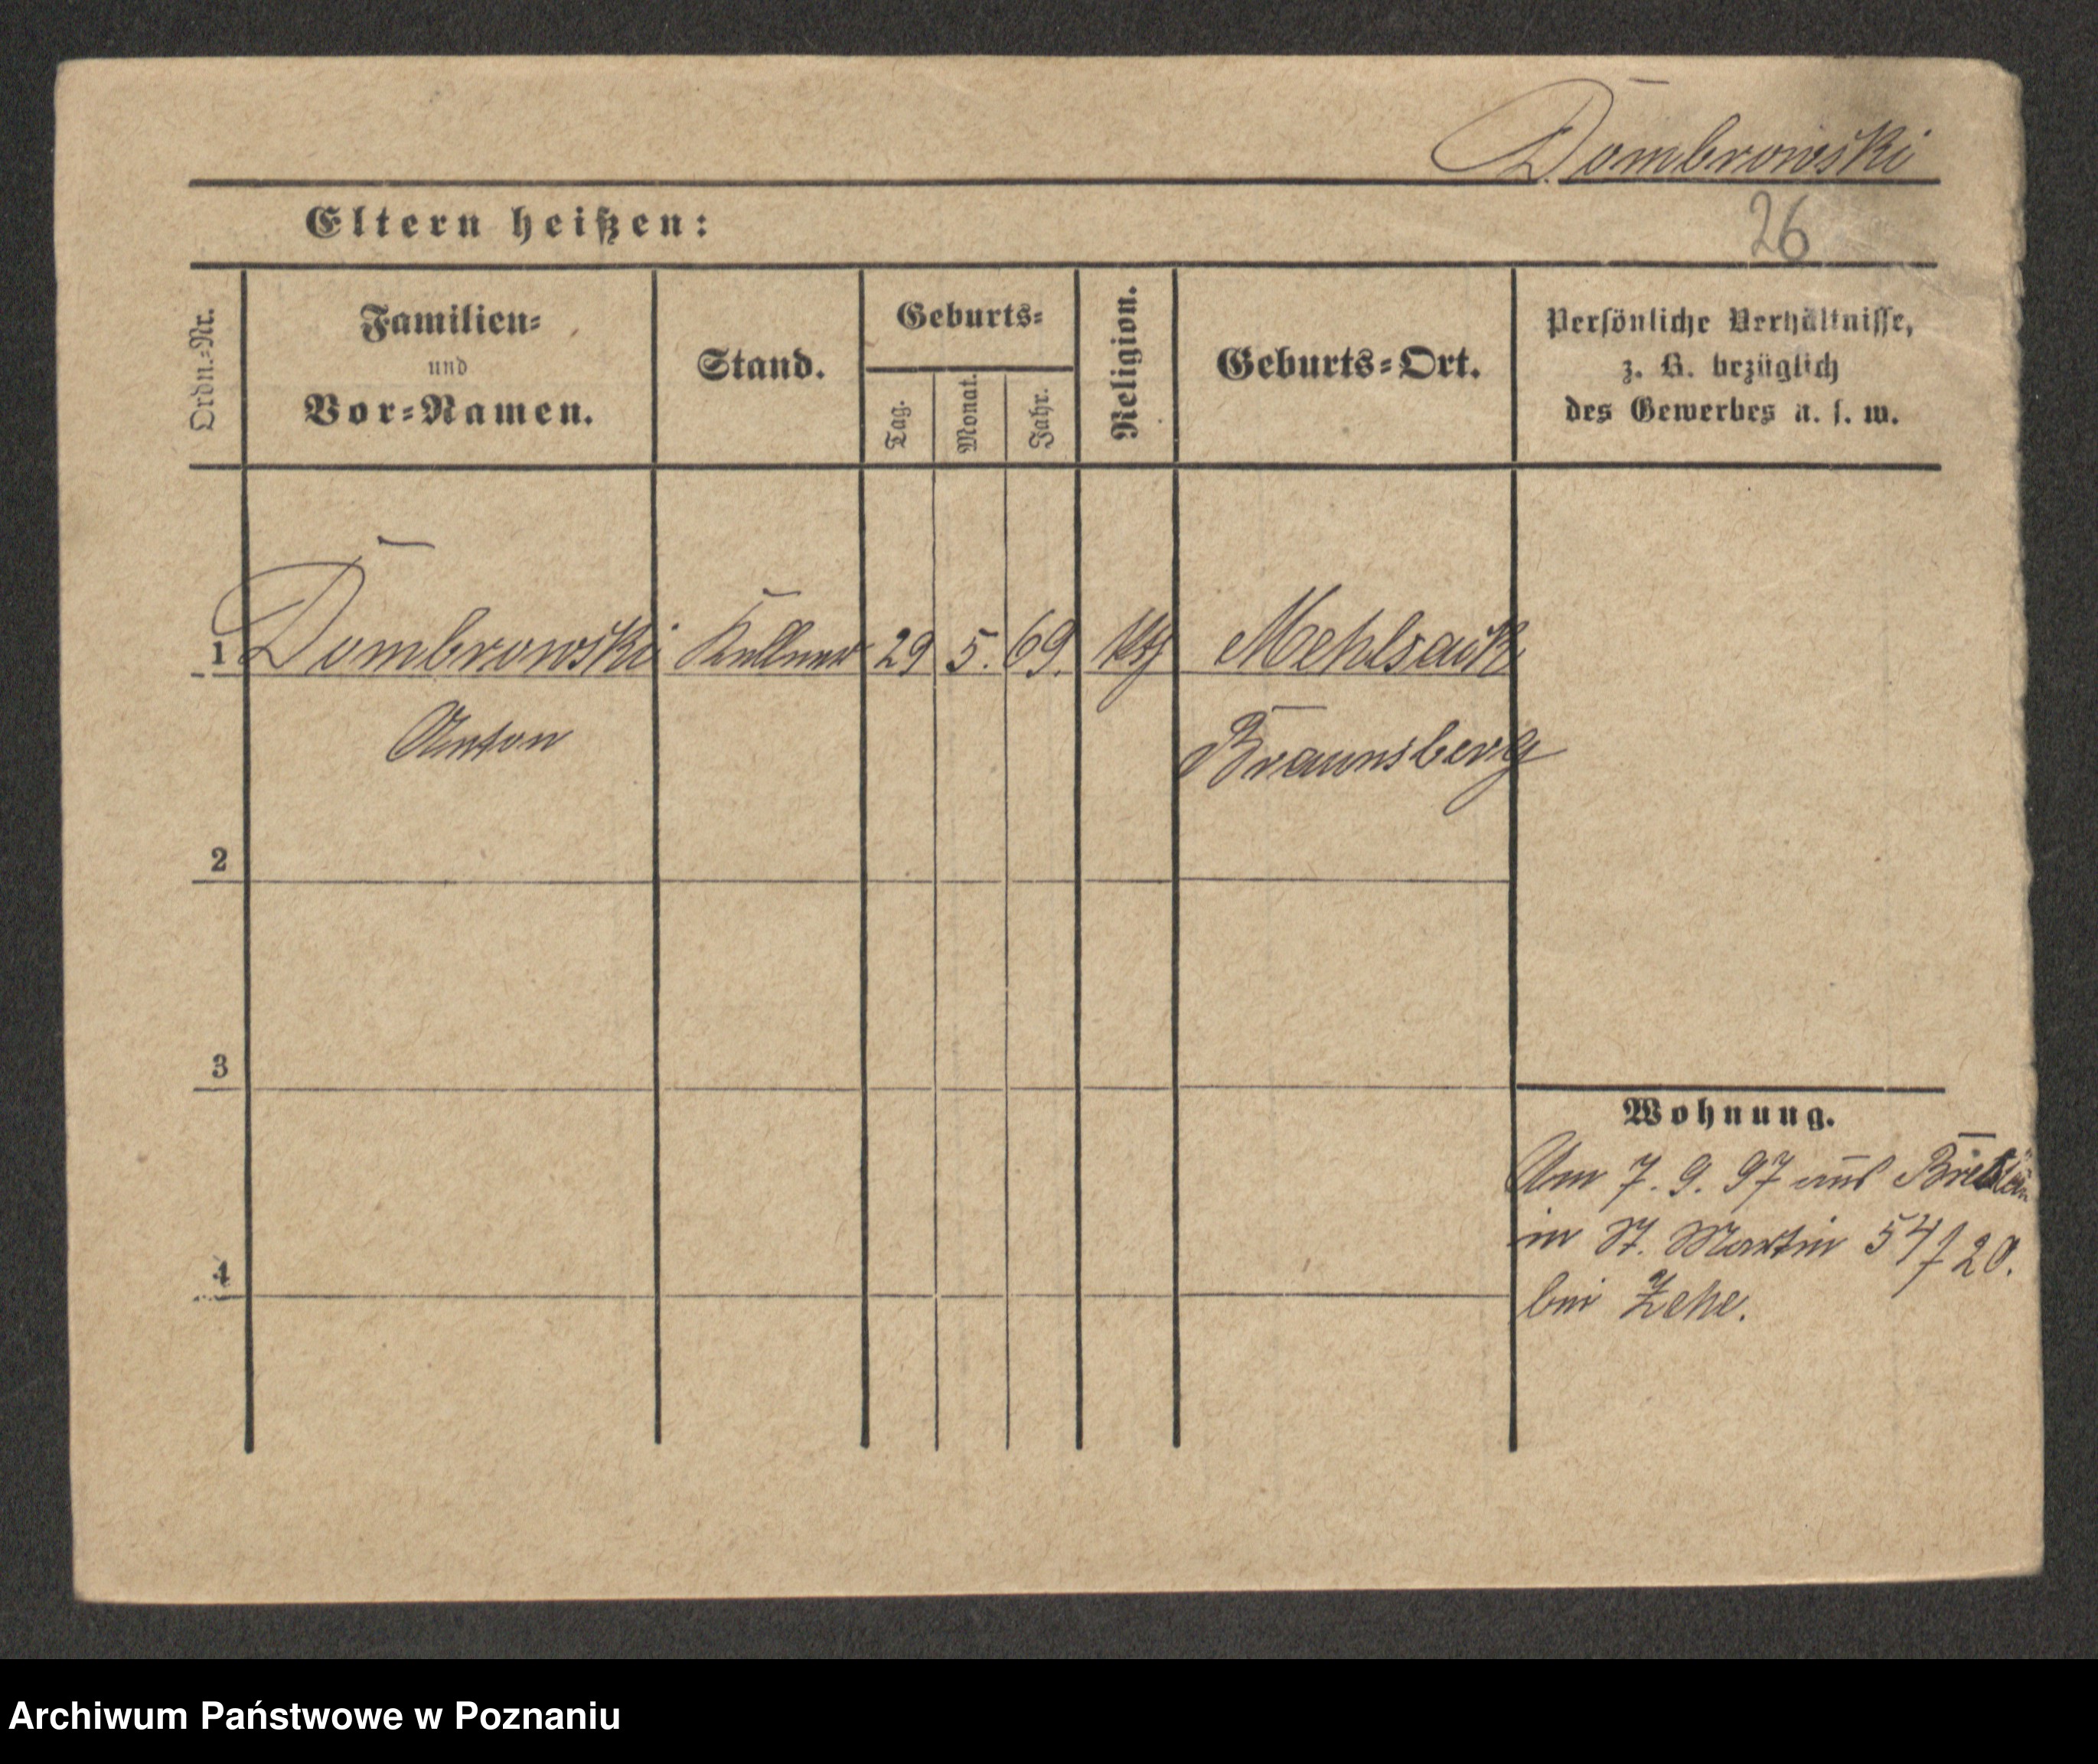 Dombrowski
Eltern heißen:
26
Ordn.-Nr.
Familien-
und
Vor-Namen.
Stand.
Geburts-
Tag.
Monat.
Jahr.
Religion.
Geburts-Ort.
Persönliche Verhältnisse,
z. B. bezüglich
des Gewerbes u. s. w.
1 Dombrowski Kellner 29 5. 69. Mehlsack
Anton Braunsberg
2
3
4
Wohnung.
Am 7. 9. 97 aus
in St. Martin 54/20.
bei Zehe.
Archiwum Państwowe w Poznaniu